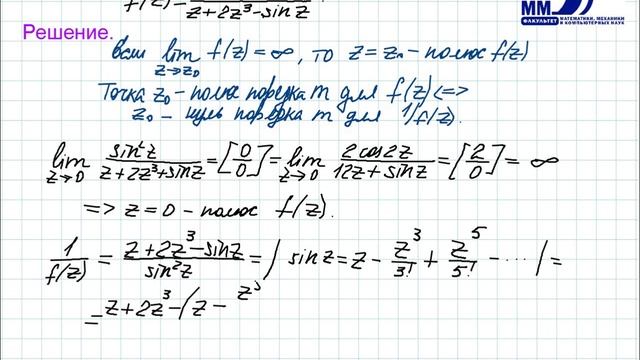 f(z) = z+2z³-sinz
ММ
ФАКУЛЬТЕТ МАТЕМАТИКИ, МЕХАНИКИ И КОМПЬЮТЕРНЫХ НАУК
Решение.
Если lim z→z₀ f(z) = ∞, то z = z₀ - полюс f(z)
Точка z₀ - полюс порядка m для f(z) <=>
z₀ - нуль порядка m для 1/f(z).
lim z→0 sin²z / z+2z³+sinz = [0/0] = lim z→0 2cos2z / 12z+sinz = [2/0] = ∞
=> z=0 - полюс f(z).
1/f(z) = z+2z³-sinz / sin²z = | sinz = z - z³/3! + z⁵/5! - ... | =
= z+2z³-(z- z³